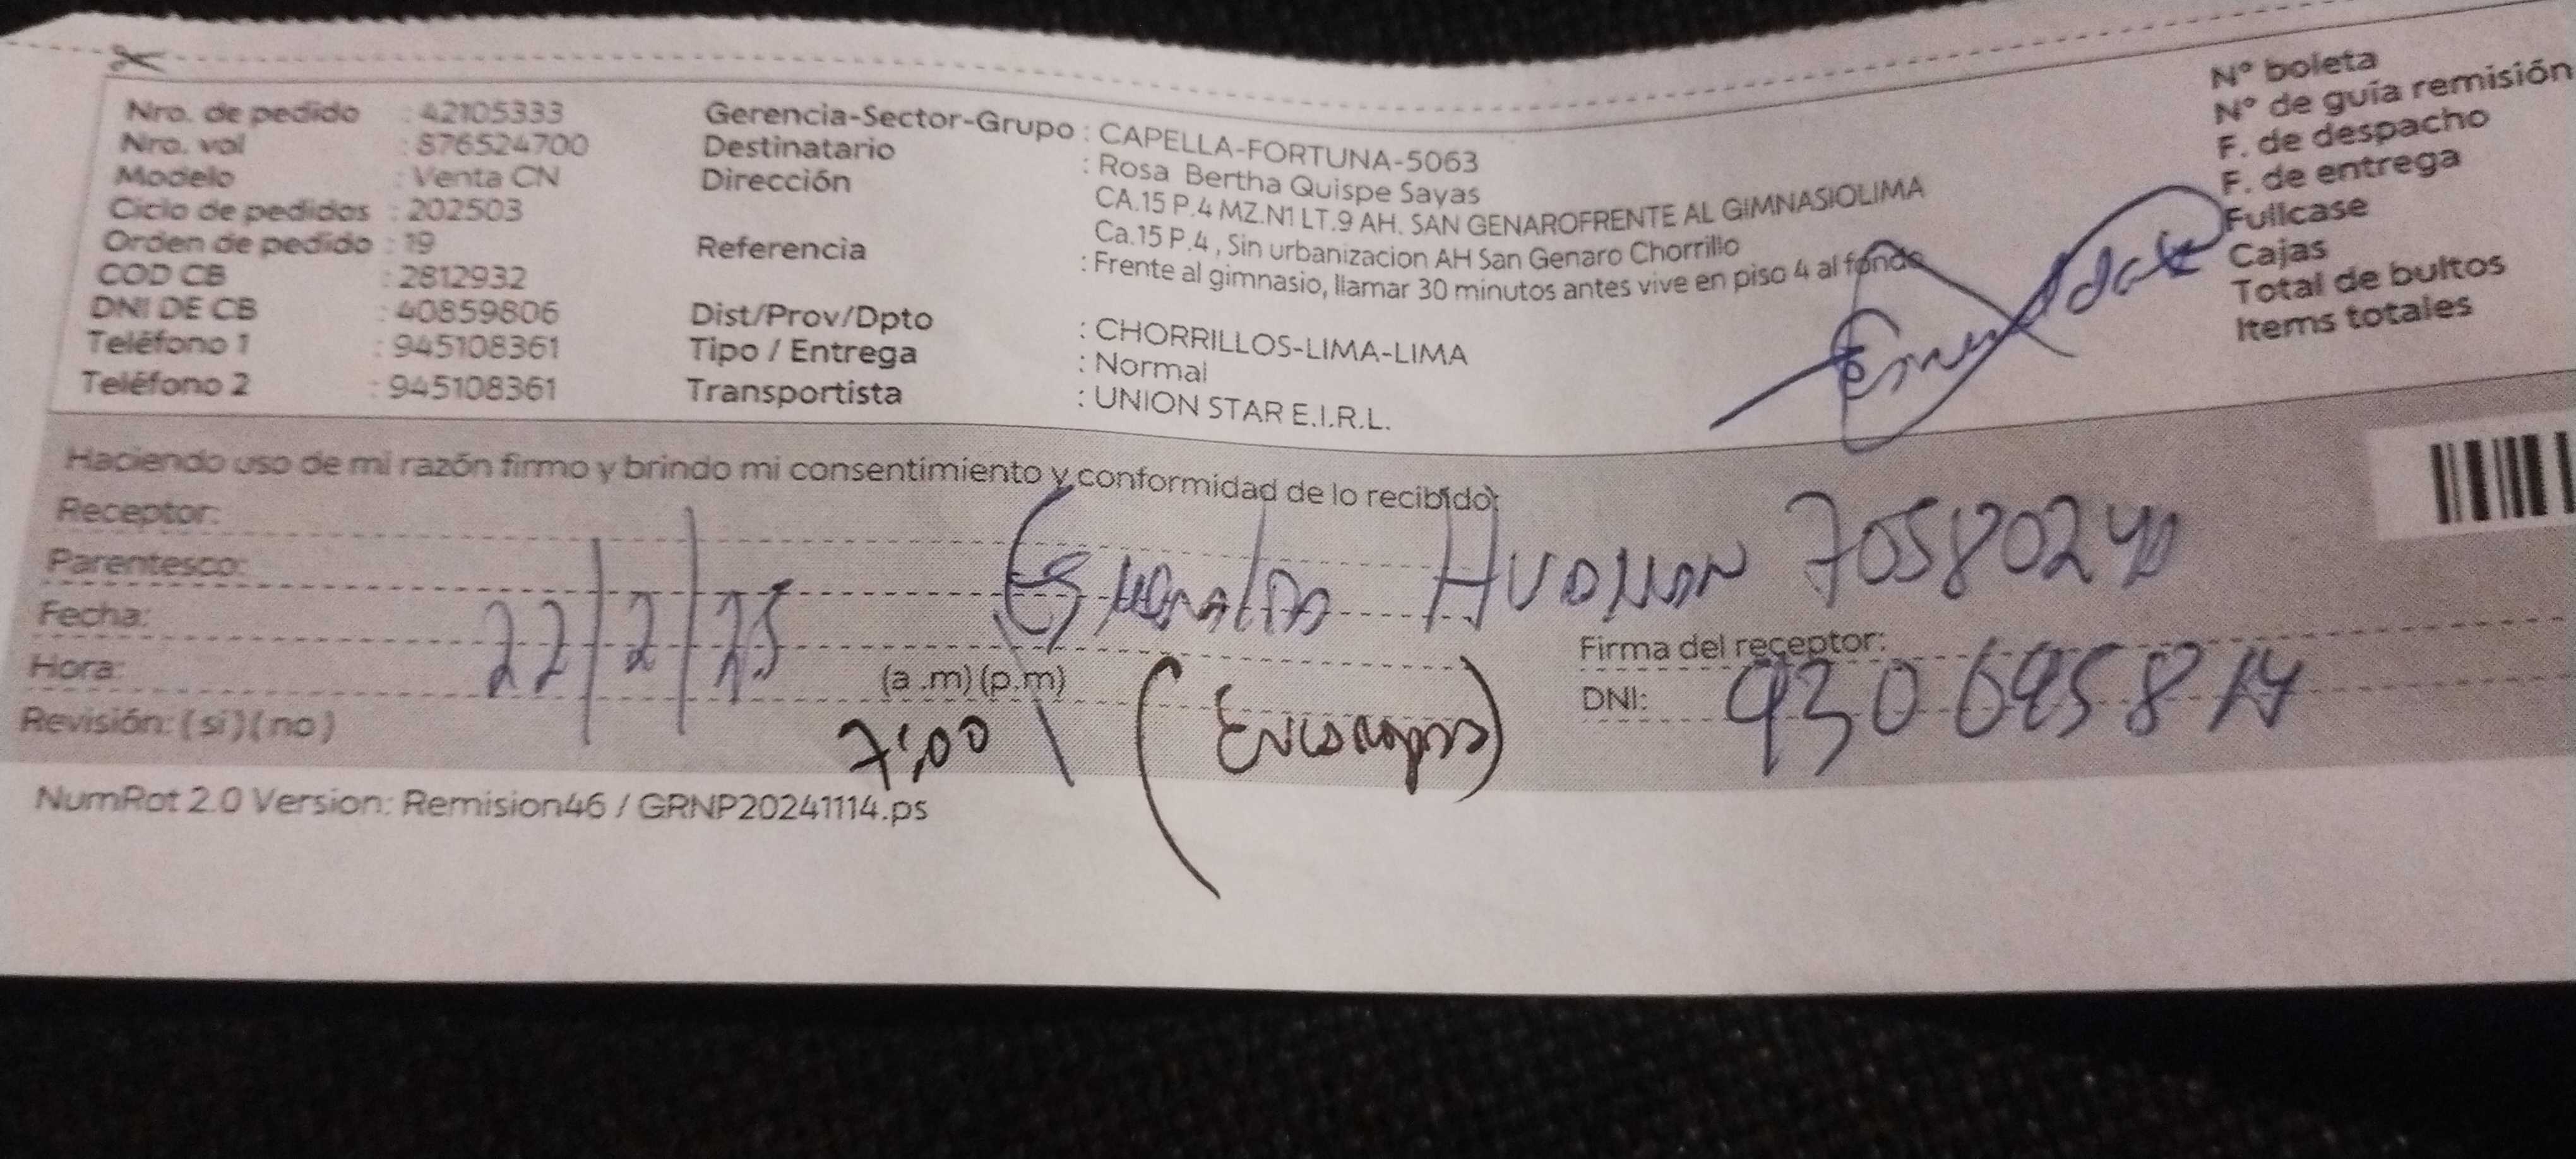 Nro. de pedido : 42105333
Nro. val : 876524700
Modelo : Venta CN
Ciclo de pedidos : 202503
Orden de pedido : 19
COD CB : 2812932
DNI DE CB : 40859806
Teléfono 1 : 945108361
Teléfono 2 : 945108361
Gerencia-Sector-Grupo : CAPELLA-FORTUNA-5063
Destinatario : Rosa Bertha Quispe Sayas
Dirección CA.15 P.4 MZ.N1 LT.9 AH. SAN GENAROFRENTE AL GIMNASIOLIMA
Ca.15 P.4 , Sin urbanizacion AH San Genaro Chorrillo
Referencia : Frente al gimnasio, llamar 30 minutos antes vive en piso 4 al fondo
Dist/Prov/Dpto : CHORRILLOS-LIMA-LIMA
Tipo / Entrega : Normal
Transportista : UNION STAR E.I.R.L.
N° boleta
N° de guía remisión
F. de despacho
F. de entrega
Fullcase
Cajas
Total de bultos
Items totales
Haciendo uso de mi razón firmo y brindo mi consentimiento y conformidad de lo recibido:
Receptor:
Parentesco:
Fecha: 22/2/25
Hora: 7:00 (a .m) (p.m)
Revisión: ( si ) ( no )
Firma del receptor:
DNI:
NumRot 2.0 Version: Remision46 / GRNP20241114.ps